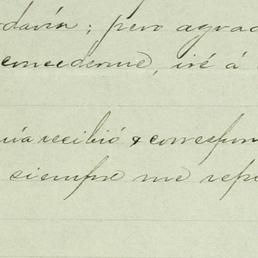 davía; pero agrad
concederme, iré á
uía recibió & correspon
siempre me repi